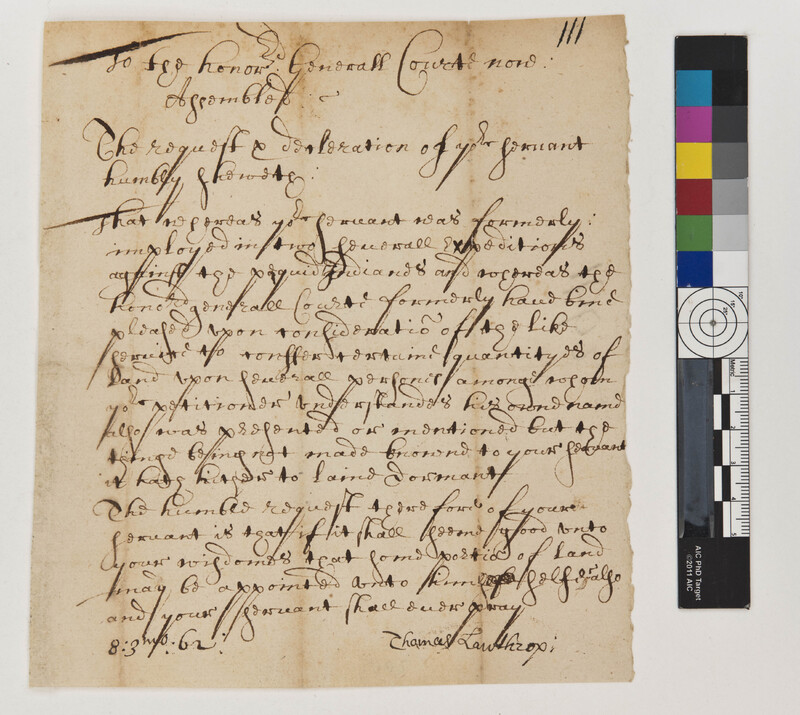 111
To the honor'd Generall Courte now:
Assembled:
The request & decleration of yor servant
humbly sheweth:
That whereas yor servant was formerly:
imployed in two severall Expeditions
against the pequid Indianes and whereas the
honord generall Courte formerly have bine
pleased upon consideratio of the like
service to conffer certaine quantityes of
land upon severall persones amongst whom
yor petitioner understandes his owne name
also was presented or mentioned but the
thinge being not made knowne to your servant
it hath hitherto laine Dormant
The humble request therefore of youre
servant is that if it shall seeme good unto
your wisdomes that some portio of land
may be appointed unto him selfe also
and your servant shall ever pray
8:3mo:62: Thomas Lawthrop:
AIC PhD Target
©2011 AIC
Metric
1
2
3
4
5